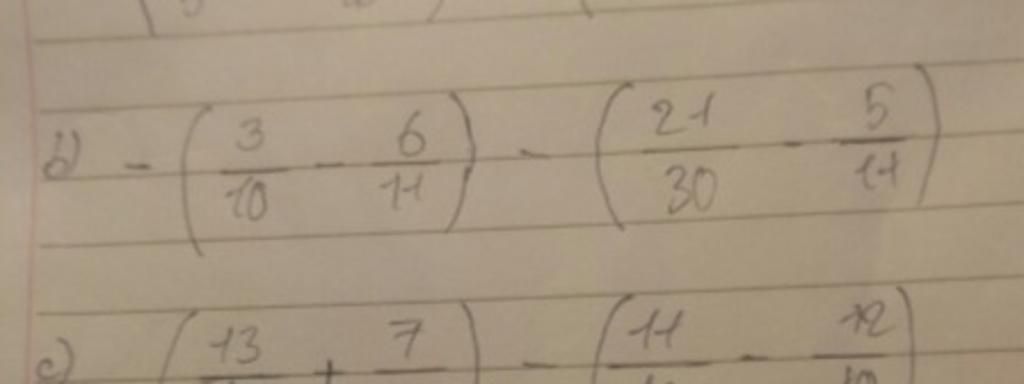 b) - (3/10 - 6/11) - (21/30 - 5/11)
c) (13 + 7) - (11 - 12)